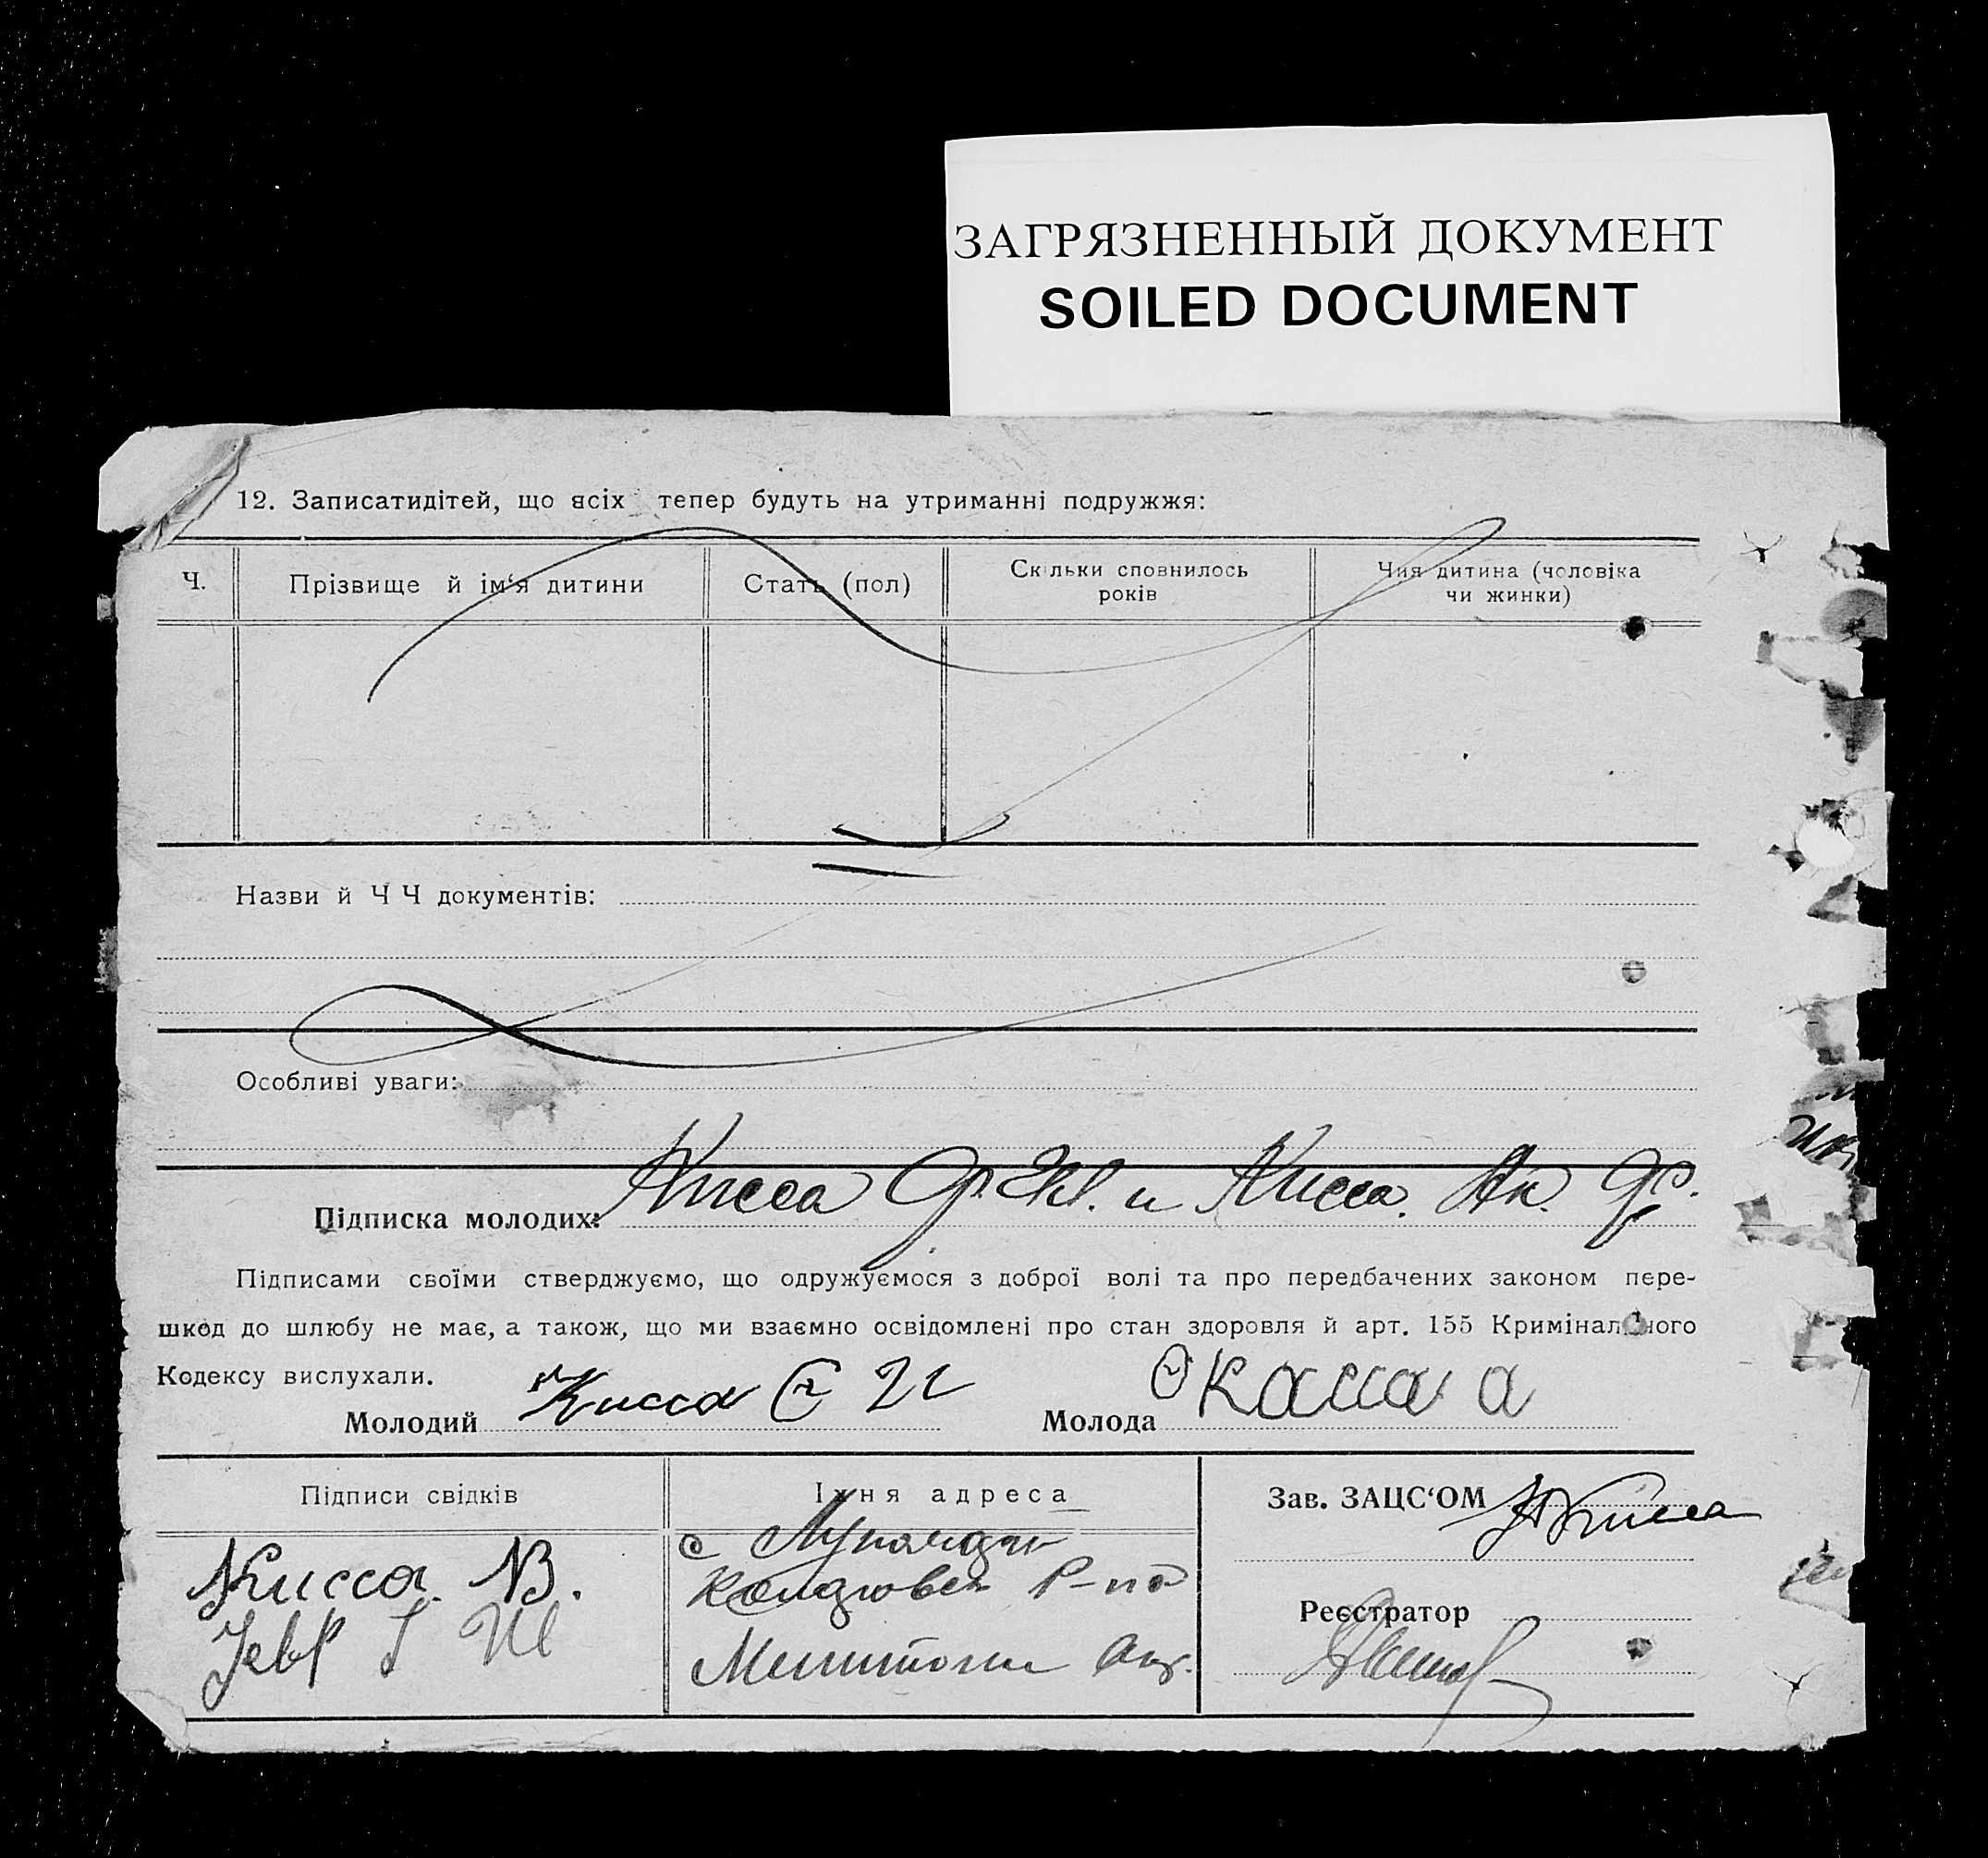 ЗАГРЯЗНЕННЫЙ ДОКУМЕНТ
SOILED DOCUMENT
12. Записатидітей, що всіх тепер будуть на утриманні подружжя:
Ч. Прізвище й ім‘я дитини Стать (пол) Скільки сповнилось років Чия дитина (чоловіка чи жинки)
Назви й Ч Ч документів:
Особливі уваги:
Підписка молодих: Кисса Ф. Ив. и Кисса. Ан.
Підписами своїми стверджуємо, що одружуємося з доброї волі та про передбачених законом пере-
шкод до шлюбу не має, а також, що ми взаємно освідомлені про стан здоровля й арт. 155 Кримінального
Кодексу вислухали.
Молодий Кисса Молода
Підписи свідків Їхня адреса Зав. ЗАЦС‘ОМ Кисса
Кисса В. с
Р-на
Реєстратор